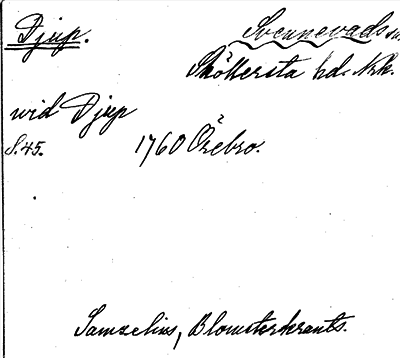 Djup. Svennevads sn
Sköllersta hd. Nrk.
wid Djup
S. 45. 1760 Örebro.
Samzelius, Blomsterkrants.